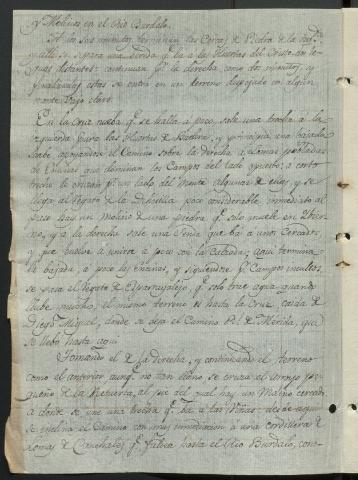 y Molinos en el Rio Burdalo.
A los seis minutos terminan las Cercas de Piedra de la
y allí se separa una senda q.e va a las Huertas del Cristo, dos le-
guas distantes: continuan p.r la derecha como dos minutos, y
finalizando estas se entra en un terreno despejado en algun
monte bajo claro.
En la Cruz nueba q.e se halla a poco, sale una trocha a la
izquierda para las Huertas de y principia una bajada
suabe apoyandose el Camino sobre la derecha a lomas pobladas
de Encinas que dominan los Campos del lado opuesto; a corto
trecho le cruzan p.r un lado del Monte algunas de ellas, y se
llega al Regato de la poco considerable: inmediato al
Paso hay un Molino de una piedra q.e solo muele en Ibier-
no, y a la derecha sale una Senda que va a unos Cercados
y que vuelve a unirse a poco con la Calzada; aqui termina
la bajada, a poco las encinas, y siguiendose p.r Campos incultos
se pasa el Regato de q.e solo trae agua quando
llube mucho, el mismo terreno es hasta la Cruz caida de
Diego Miguel, donde se deja el Camino R.l de Merida, que
se llebo hasta aqui.
Tomando el de la derecha, y continuando el terreno
como el anterior aunq.e no tan llano, se cruza el arroyo pe-
queño de la al pie del qual hay un Molino cercado
a donde se une una trocha q.e va a las Viñas: desde aqui
se inclina el Camino con muy inmediacion a una cordillera de
lomas de Canchales q.e hasta el Rio Burdalo, con-